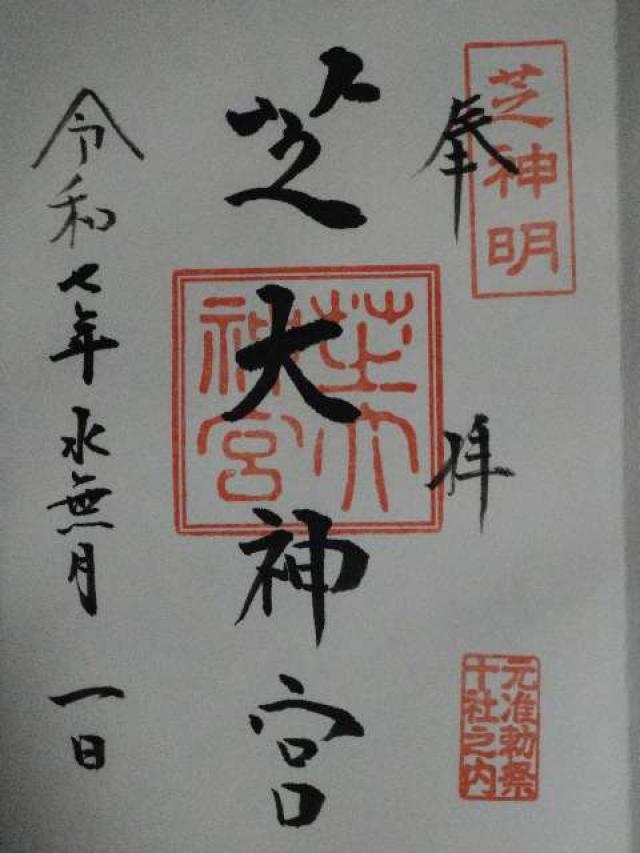 芝神明
奉拝
元准勅祭
十社之内
芝大神宮
芝大
神宮
令和七年水無月一日